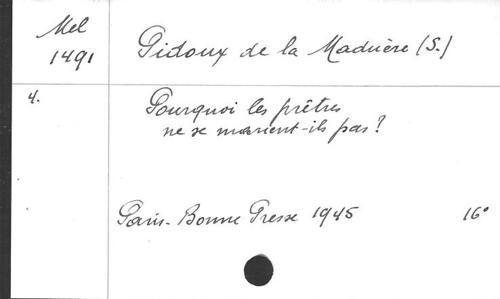 Mel
1491
Pidoux de la Maduère (S.)
4.
Pourquoi les prêtres
ne se marient-ils pas?
Paris - Bonne Presse 1945 16°